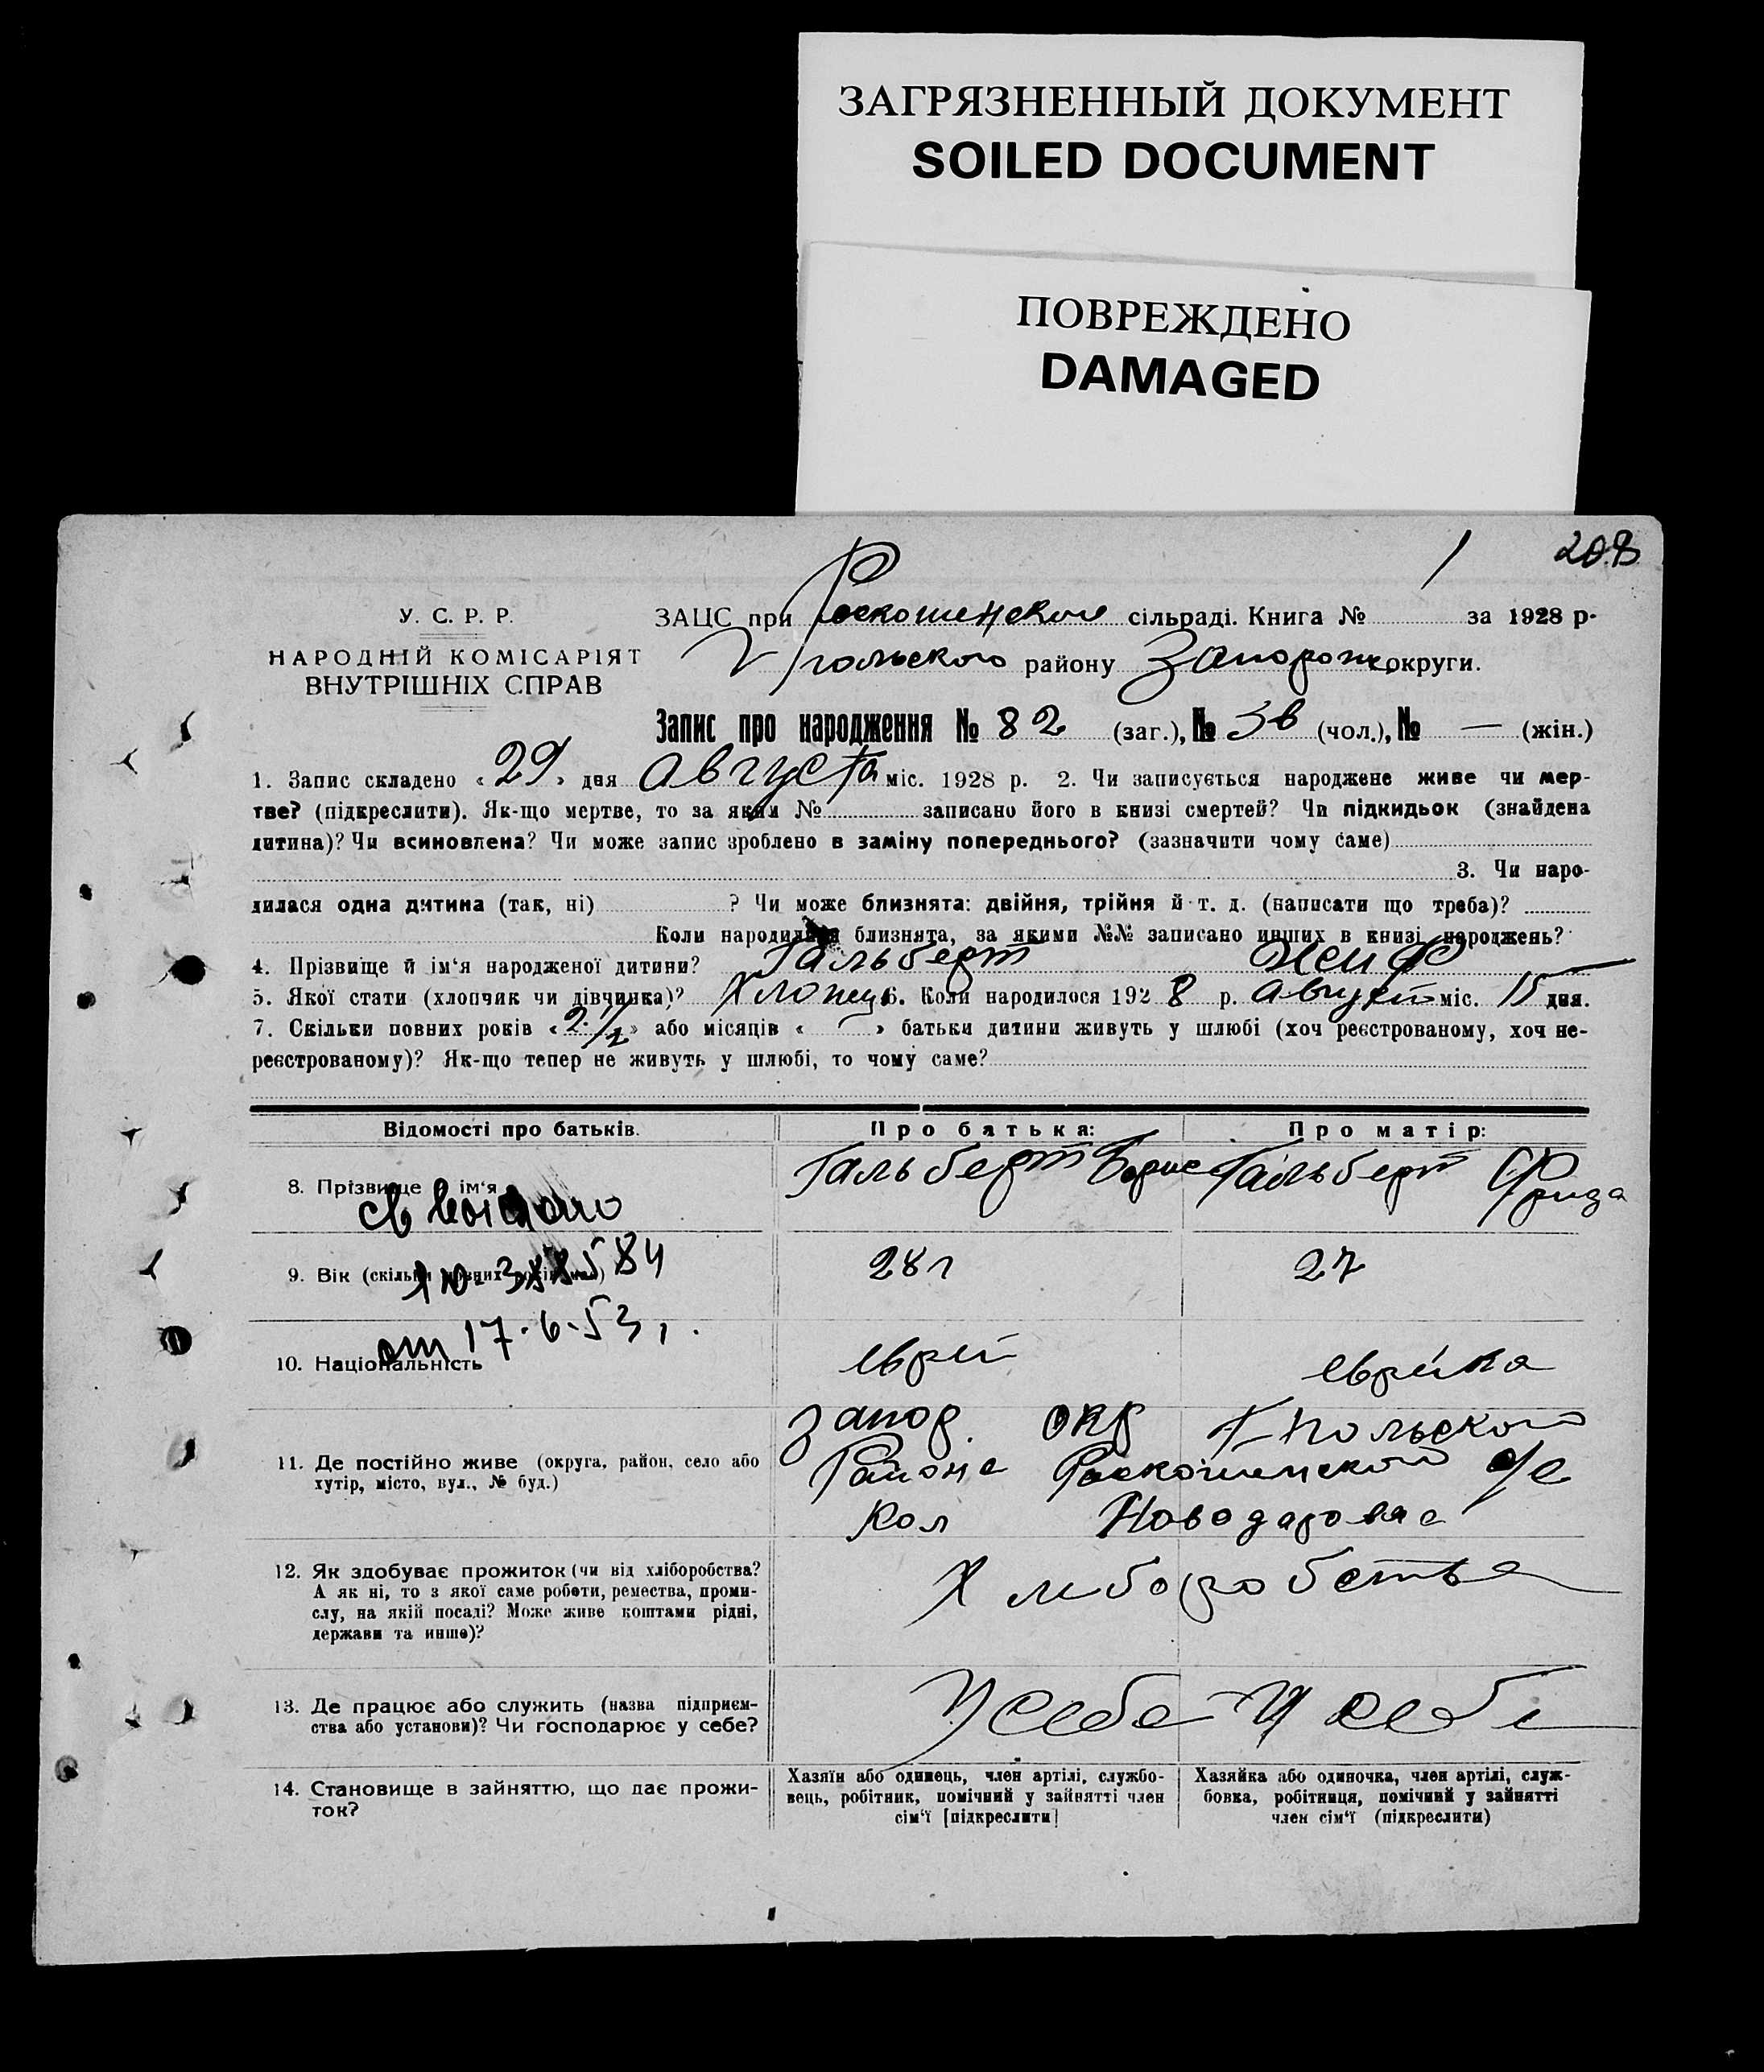 ЗАГРЯЗНЕННЫЙ ДОКУМЕНТ
SOILED DOCUMENT
ПОВРЕЖДЕНО
DAMAGED
208
У. С. Р. Р.
НАРОДНІЙ КОМІСАРІЯТ
ВНУТРІШНІХ СПРАВ
ЗАЦС при Роскошенской сільраді. Книга № за 1928 р.
польского району Запорож округи.
Запис про народження № 82 (заг.), № (чол.), № — (жін.)
1. Запис складено «29» дня Августа міс. 1928 р. 2. Чи записується народжене живе чи мер-
тве? (підкреслити). Як-що мертве, то за яким № записано його в книзі смертей? Чи підкидьок (знайдена
дитина)? Чи всиновлена? Чи може запис зроблено в заміну попереднього? (зазначити чому саме)
3. Чи наро-
дилася одна дитина (так, ні) ? Чи може близнята: двійня, трійня й т. д. (написати що треба)?
Коли народилися близнята, за якими №№ записано инших в книзі народжень?
4. Прізвище й ім‘я народженої дитини? Гальберт
5. Якої стати (хлопчик чи дівчинка)? Хлопець 6. Коли народилося 1928 р. Август міс. 15 дня.
7. Скільки повних років «2 1/2» або місяців « » батьки дитини живуть у шлюбі (хоч реєстрованому, хоч не-
реєстрованому)? Як-що тепер не живуть у шлюбі, то чому саме?
Відомості про батьків. Про батька: Про матір:
8. Прізвище й ім‘я Гальберт Борис Гальберт Фрида
9. Вік (скільки повних років має) 28 л 27
от 17.6.53
10. Національність еврей еврейка
11. Де постійно живе (округа, район, село або
хутір, місто, вул., № буд.)
Запор. окр польского
Района Роскошенской с/с
Кол Новодаровка
12. Як здобуває прожиток (чи від хліборобства?
А як ні, то з якої саме роботи, ремества, проми-
слу, на якій посаді? Може живе коштами рідні,
держави та инше)?
Хлиборобства
13. Де працює або служить (назва підприєм-
ства або установи)? Чи господарює у себе?
У себе У себе
14. Становище в зайняттю, що дає прожи-
ток?
Хазяїн або одинець, член артілі, службо-
вець, робітник, помічний у зайнятті член
сім‘ї [підкреслити]
Хазяйка або одиночка, член артілі, служ-
бовка, робітниця, помічний у зайнятті
член сім‘ї (підкреслити)